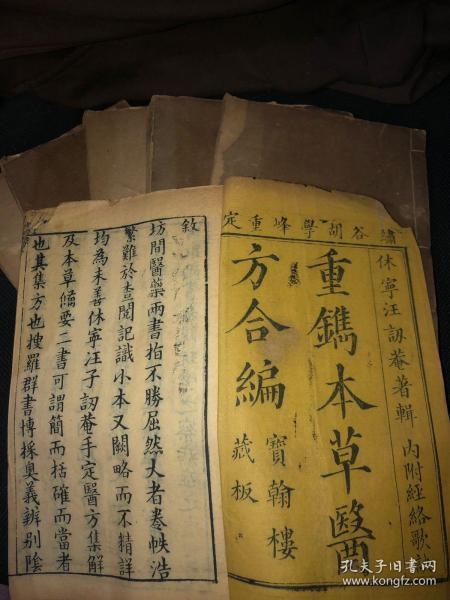 繡谷胡學峰重定
休寧汪訒菴著輯 內附經絡歌
重鐫本草醫
方合編
寶翰樓
藏板
敘
坊間醫藥兩書指不勝屈然大者卷帙浩
繁難於查閱記識小本又闕略而不精詳
均為未善休寧汪子訒菴手定醫方集解
及本草備要二書可謂簡而括確而當者
也其集方也搜羅群書博採奧義辨別陰
孔夫子旧书网
www.kongfz.com